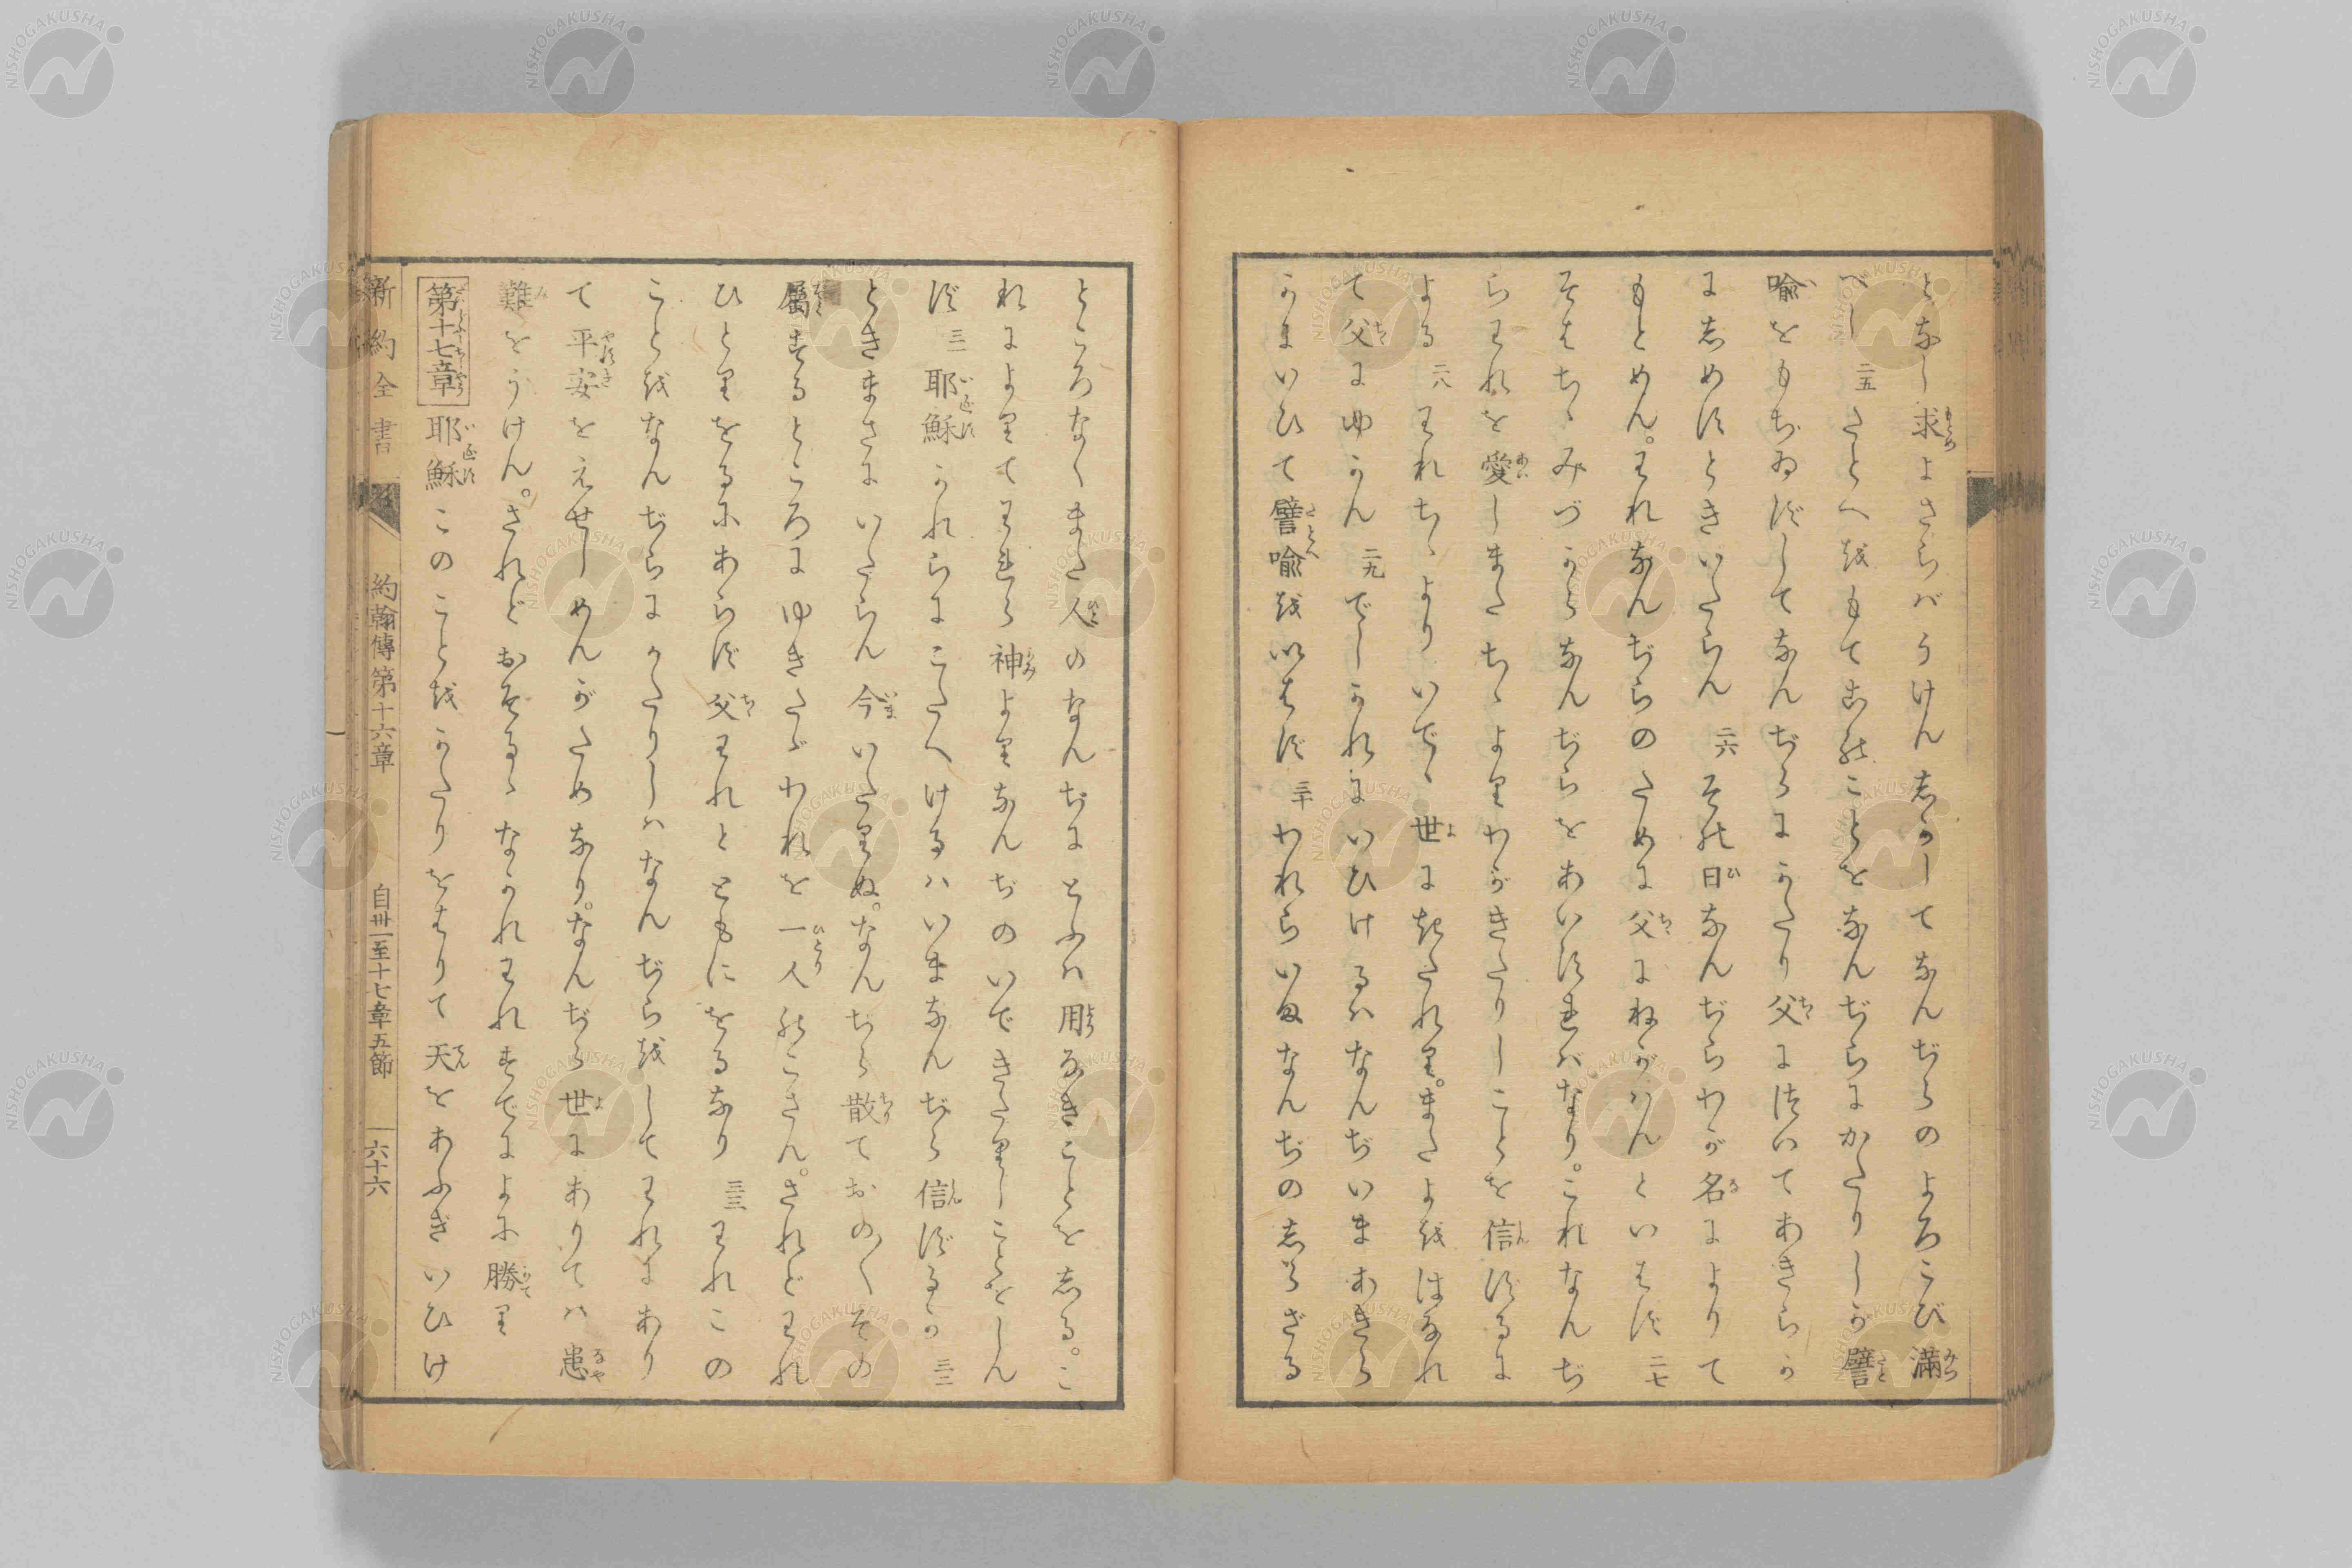 となし求よさらバうけん志かしてなんぢらのよろこび滿
べし 二五 たとへをもてこのことをなんぢらにかたりしが譬
喩をもちゐずしてなんぢらにかたり父に就いてあきらか
に志めすときいたらん 二六 その日なんぢらわが名によりて
もとめん。われなんぢらのために父にねがハんといはず 二七
そはちゝみづからなんぢらをあいすればなり。これなんぢ
らわれを愛しまたちゝよりわがきたりしことを信ずるに
よる 二八 われちゝよりいでゝ世にきたれり。またよをはなれ
て父にゆかん 二九 でしかれにいひけるハなんぢいまあきら
かにいひて譬喩をいはず 三十 われらいまなんぢの志らざる
ところなくまた人のなんぢにとふハ用なきことを志る。こ
れによりてわれら神よりなんぢのいできたりしことをしん
ず 三一 耶穌かれらにこたへけるハいまなんぢら信ずるか 三二
ときまさにいたらん今いたりぬ。なんぢら散ておの〳〵その
屬するところにゆきたゞわれを一人のこさん。されどわれ
ひとりをるにあらず父われとともにをるなり 三三 われこの
ことをなんぢらにかたりしハなんぢらをしてわれにあり
て平安をえせしめんがためなり。なんぢら世にありてハ患
難をうけん。されどおそるゝなかれわれすでによに勝り
第十七章 耶穌このことをかたりをはりて天をあふぎいひけ
新約全書 約翰傳第十六章 自卅一至十七章五節 六十六
NISHOGAKUSHA